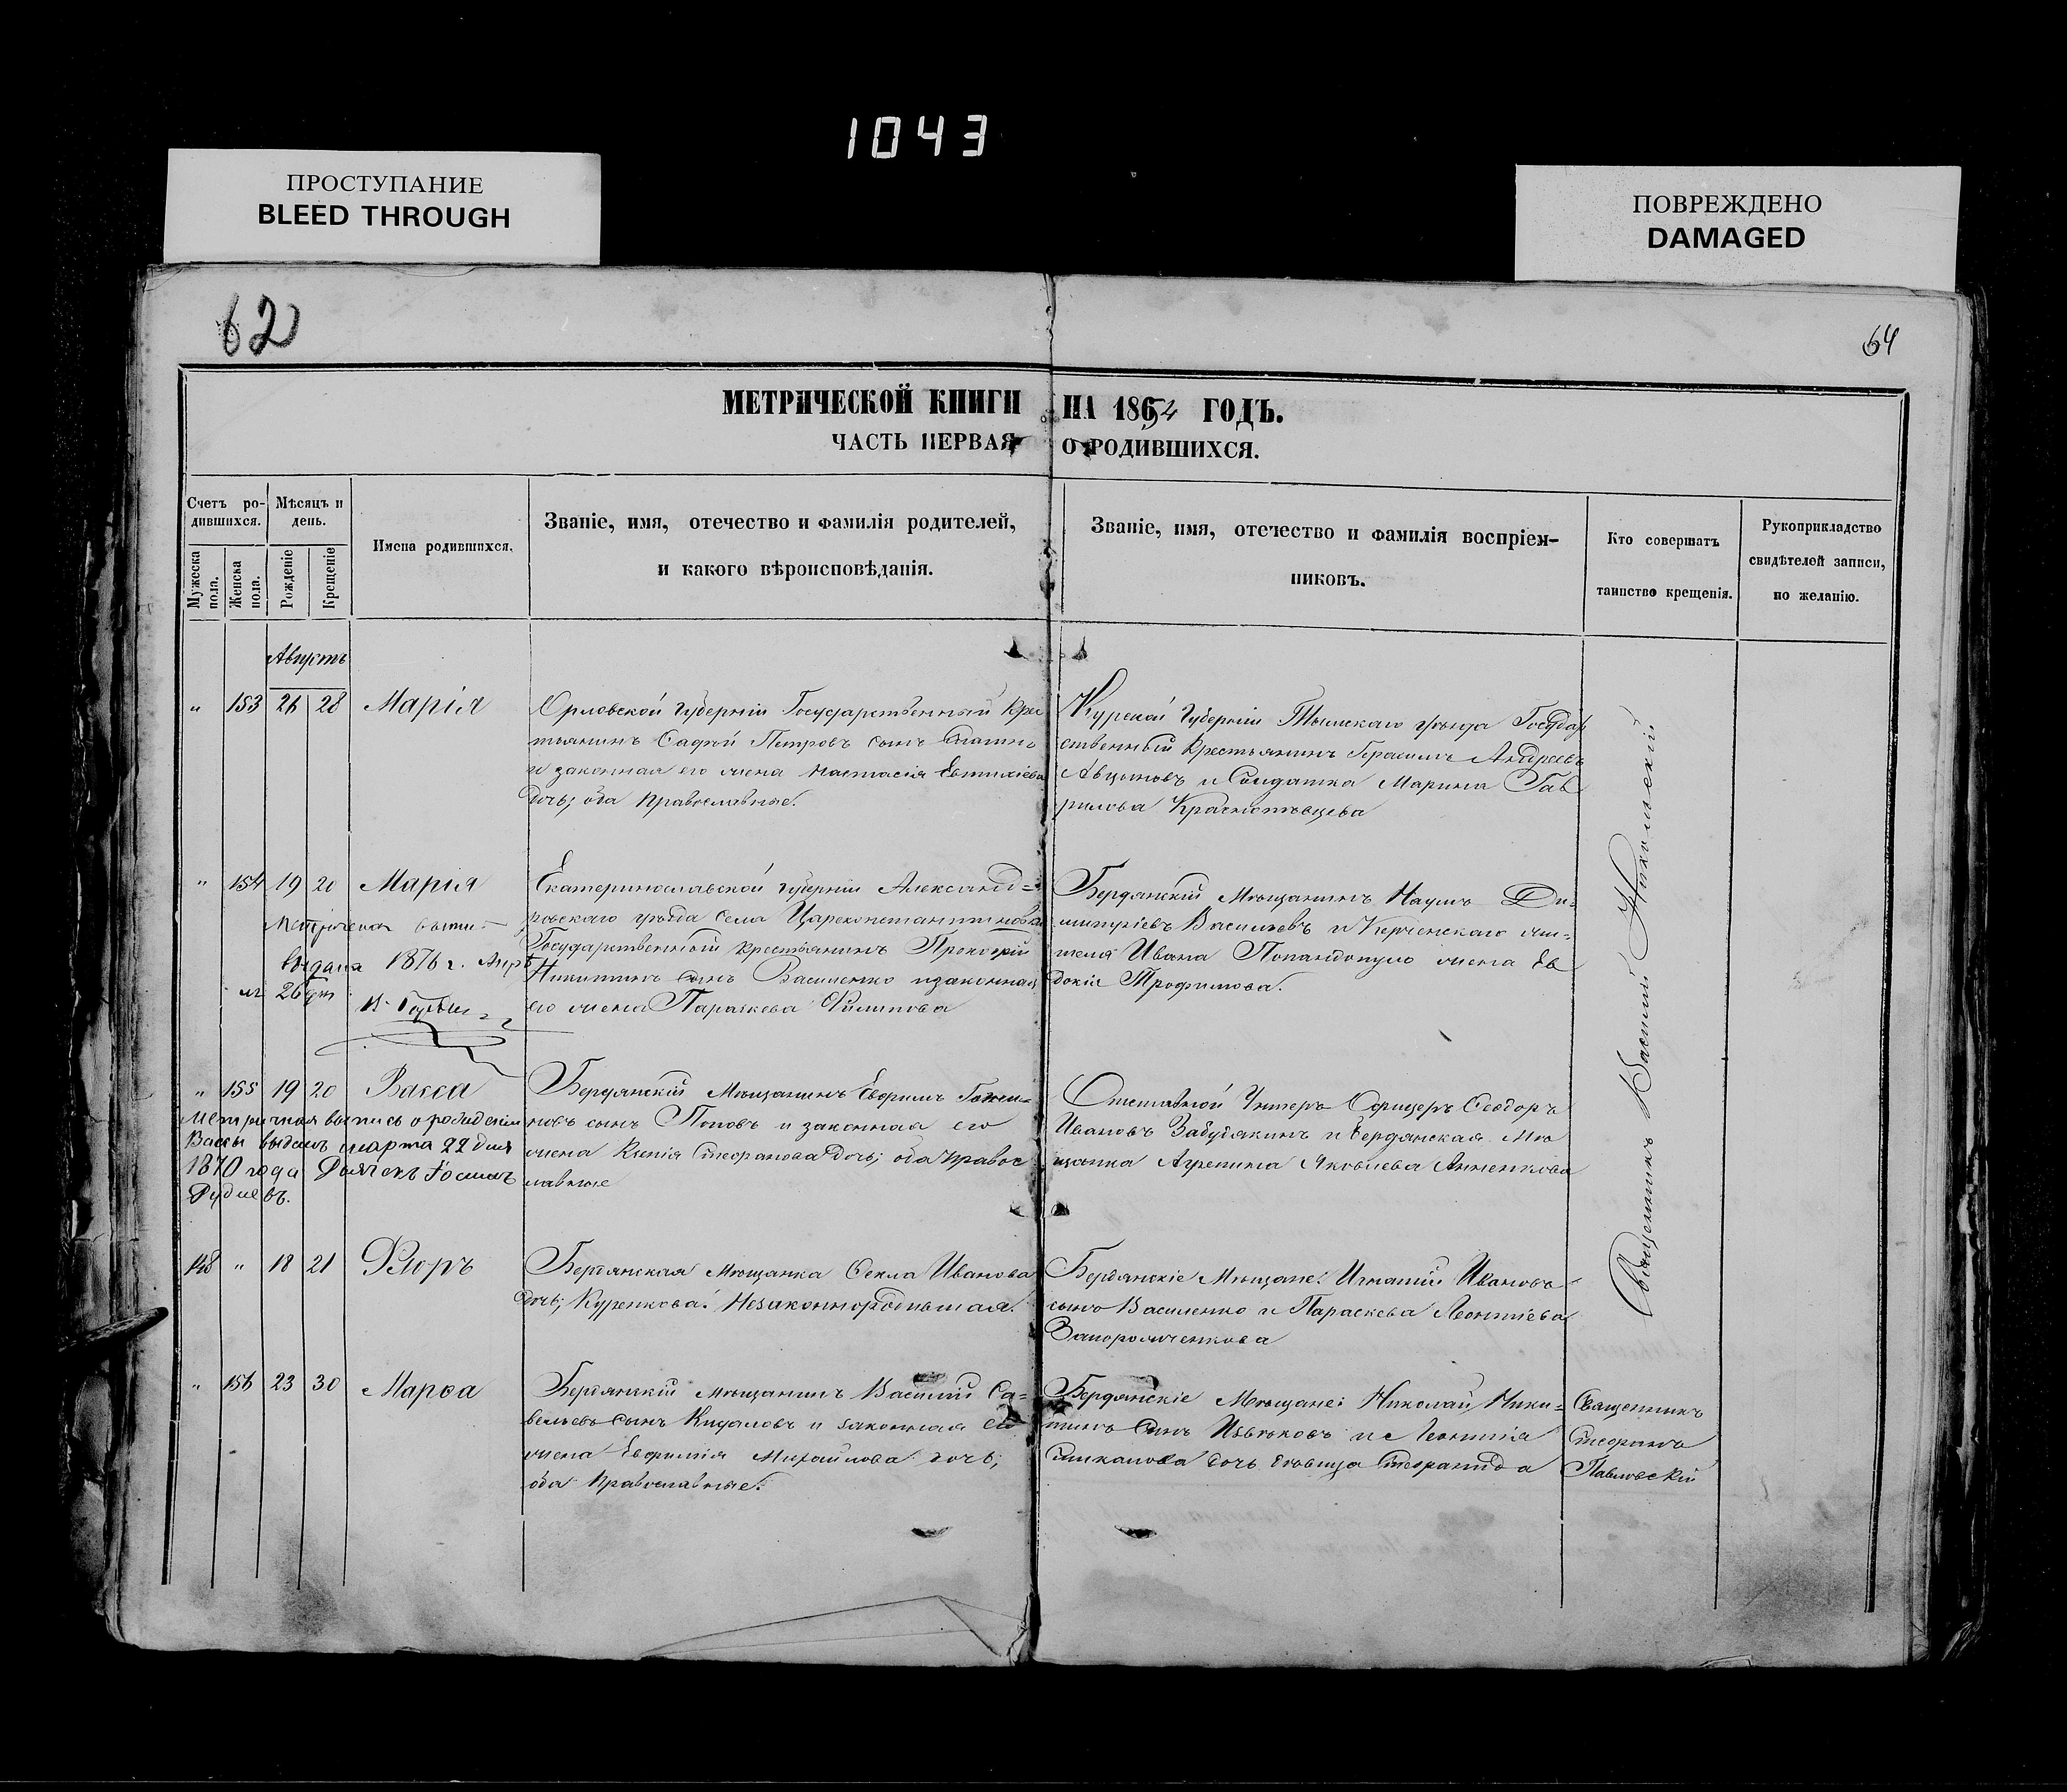 1043
ПРОСТУПАНИЕ
BLEED THROUGH
ПОВРЕЖДЕНО
DAMAGED
62
64
МЕТРИЧЕСКОЙ КНИГИ НА 1854 ГОДЪ.
ЧАСТЬ ПЕРВАЯ О РОДИВШИХСЯ.
Счетъ ро-
дившихся.
Мужеска
пола.
Женска
пола.
Мѣсяцъ и
день.
Рожденіе
Крещеніе
Имена родившихся.
Званіе, имя, отечество и фамилія родителей,
и какого вѣроисповѣданія.
Званіе, имя, отечество и фамилія воспріем-
никовъ.
Кто совершатъ
таинство крещенія.
Рукоприкладство
свидѣтелей записи,
по желанію.
Августъ
" 153 26 28 Марія
Орловской Губерніи Государственный Кре
стьянинъ Петровъ сынъ
и законная его жена Настасія Евтихіева
дочь; оба Православные.
Курской Губерніи уѣзда Государ
ственный Крестьянинъ Герасимъ Андреевъ
и Солдатка Марина Гав
рилова
" 154 19 20 Марія
Метрическая
выдана 1876 г. Апрѣ
ля 26 дня
Екатеринославской Губерніи Александ=
ровскаго уѣзда села Цареконстантиновки
Государственный крестьянинъ Прокофій
Никитинъ сынъ Василенко и законная
его жена Параскева Филипова
Бердянскій Мѣщанинъ Наумъ Ди=
митріевъ Васильевъ и Керченскаго жи=
теля Ивана Попандопуло жена Ев
докія Трофимова.
" 155 19 20 Васса
Метричная выпись о рожденіи
Вассы выдана марта 22 дня
1870 года
Рудневъ.
Бердянскій Мѣщанинъ Евфимъ
новъ сынъ Поповъ и законная его
жена Ксенія Стефанова дочь; оба Правос
лавные
Отставной Унтеръ Офицеръ Ѳеодоръ
Ивановъ и Бердянская Мѣ
щанка Агрепина Яковлева Анненкова
148 " 18 21 Флоръ
Бердянская Мѣщанка Ѳекла Иванова
дочь; Куренкова. Незаконнородившая.
Бердянскіе Мѣщане: Игнатій Ивановъ
сынъ Василенко и Параскева Леонтіева
Запорожченкова
" 156 23 30 Марѳа
Бердянскій мѣщанинъ Василій Са=
вельевъ сынъ и законная его
жена Евфимія Михайлова дочь;
оба Православные.
Бердянскіе Мѣщане: Николай Ники=
тинъ сынъ и
дочь вдовица
Священникъ Василій Никольскій
Священникъ
Стефанъ
Павловскій